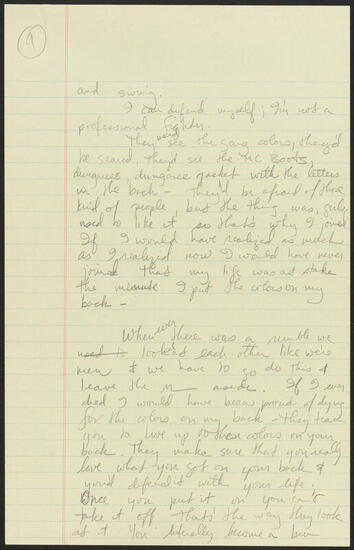 9
and swing.
I can defend myself; I'm not a
professional fighter.
They used see the gang colors, they'd
be scared, they'd see the MC Boots,
dungrees, dungaree jacket with the letters
in the back - they'd be afraid of those
kind of people but the thing was, girls
used to like it so that's why I joined
If I would have realized as much
as I realized now I would have never
joined that my life was at stake
the minute I put the colors on my
back -
When ever there was a rumble we
used to looked each other like we're
men & we have to go do this &
leave the aside. If I ever
died I would have been proud of dying
for the colors on my back - they train
you to live up to these colors on your
back. They make sure that you really
love what you got on your back &
you'd defend it with your life.
Once you put it on you can't
take it off that's the way they look
at it You literally become a